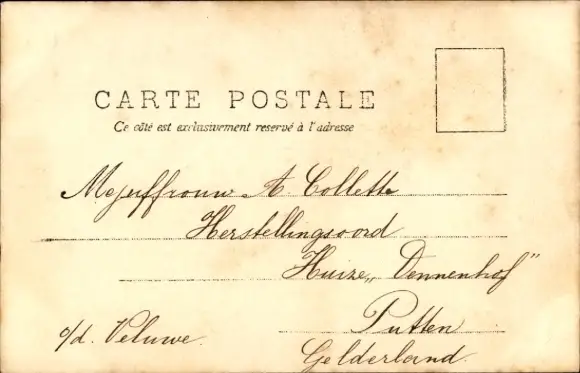 CARTE POSTALE
Ce côté est exclusivement reservé à l'adresse
Mejuffrouw A Collette
Herstellingsoord
Huize „Dennenhof"
Putten
o/d. Veluwe.
Gelderland.